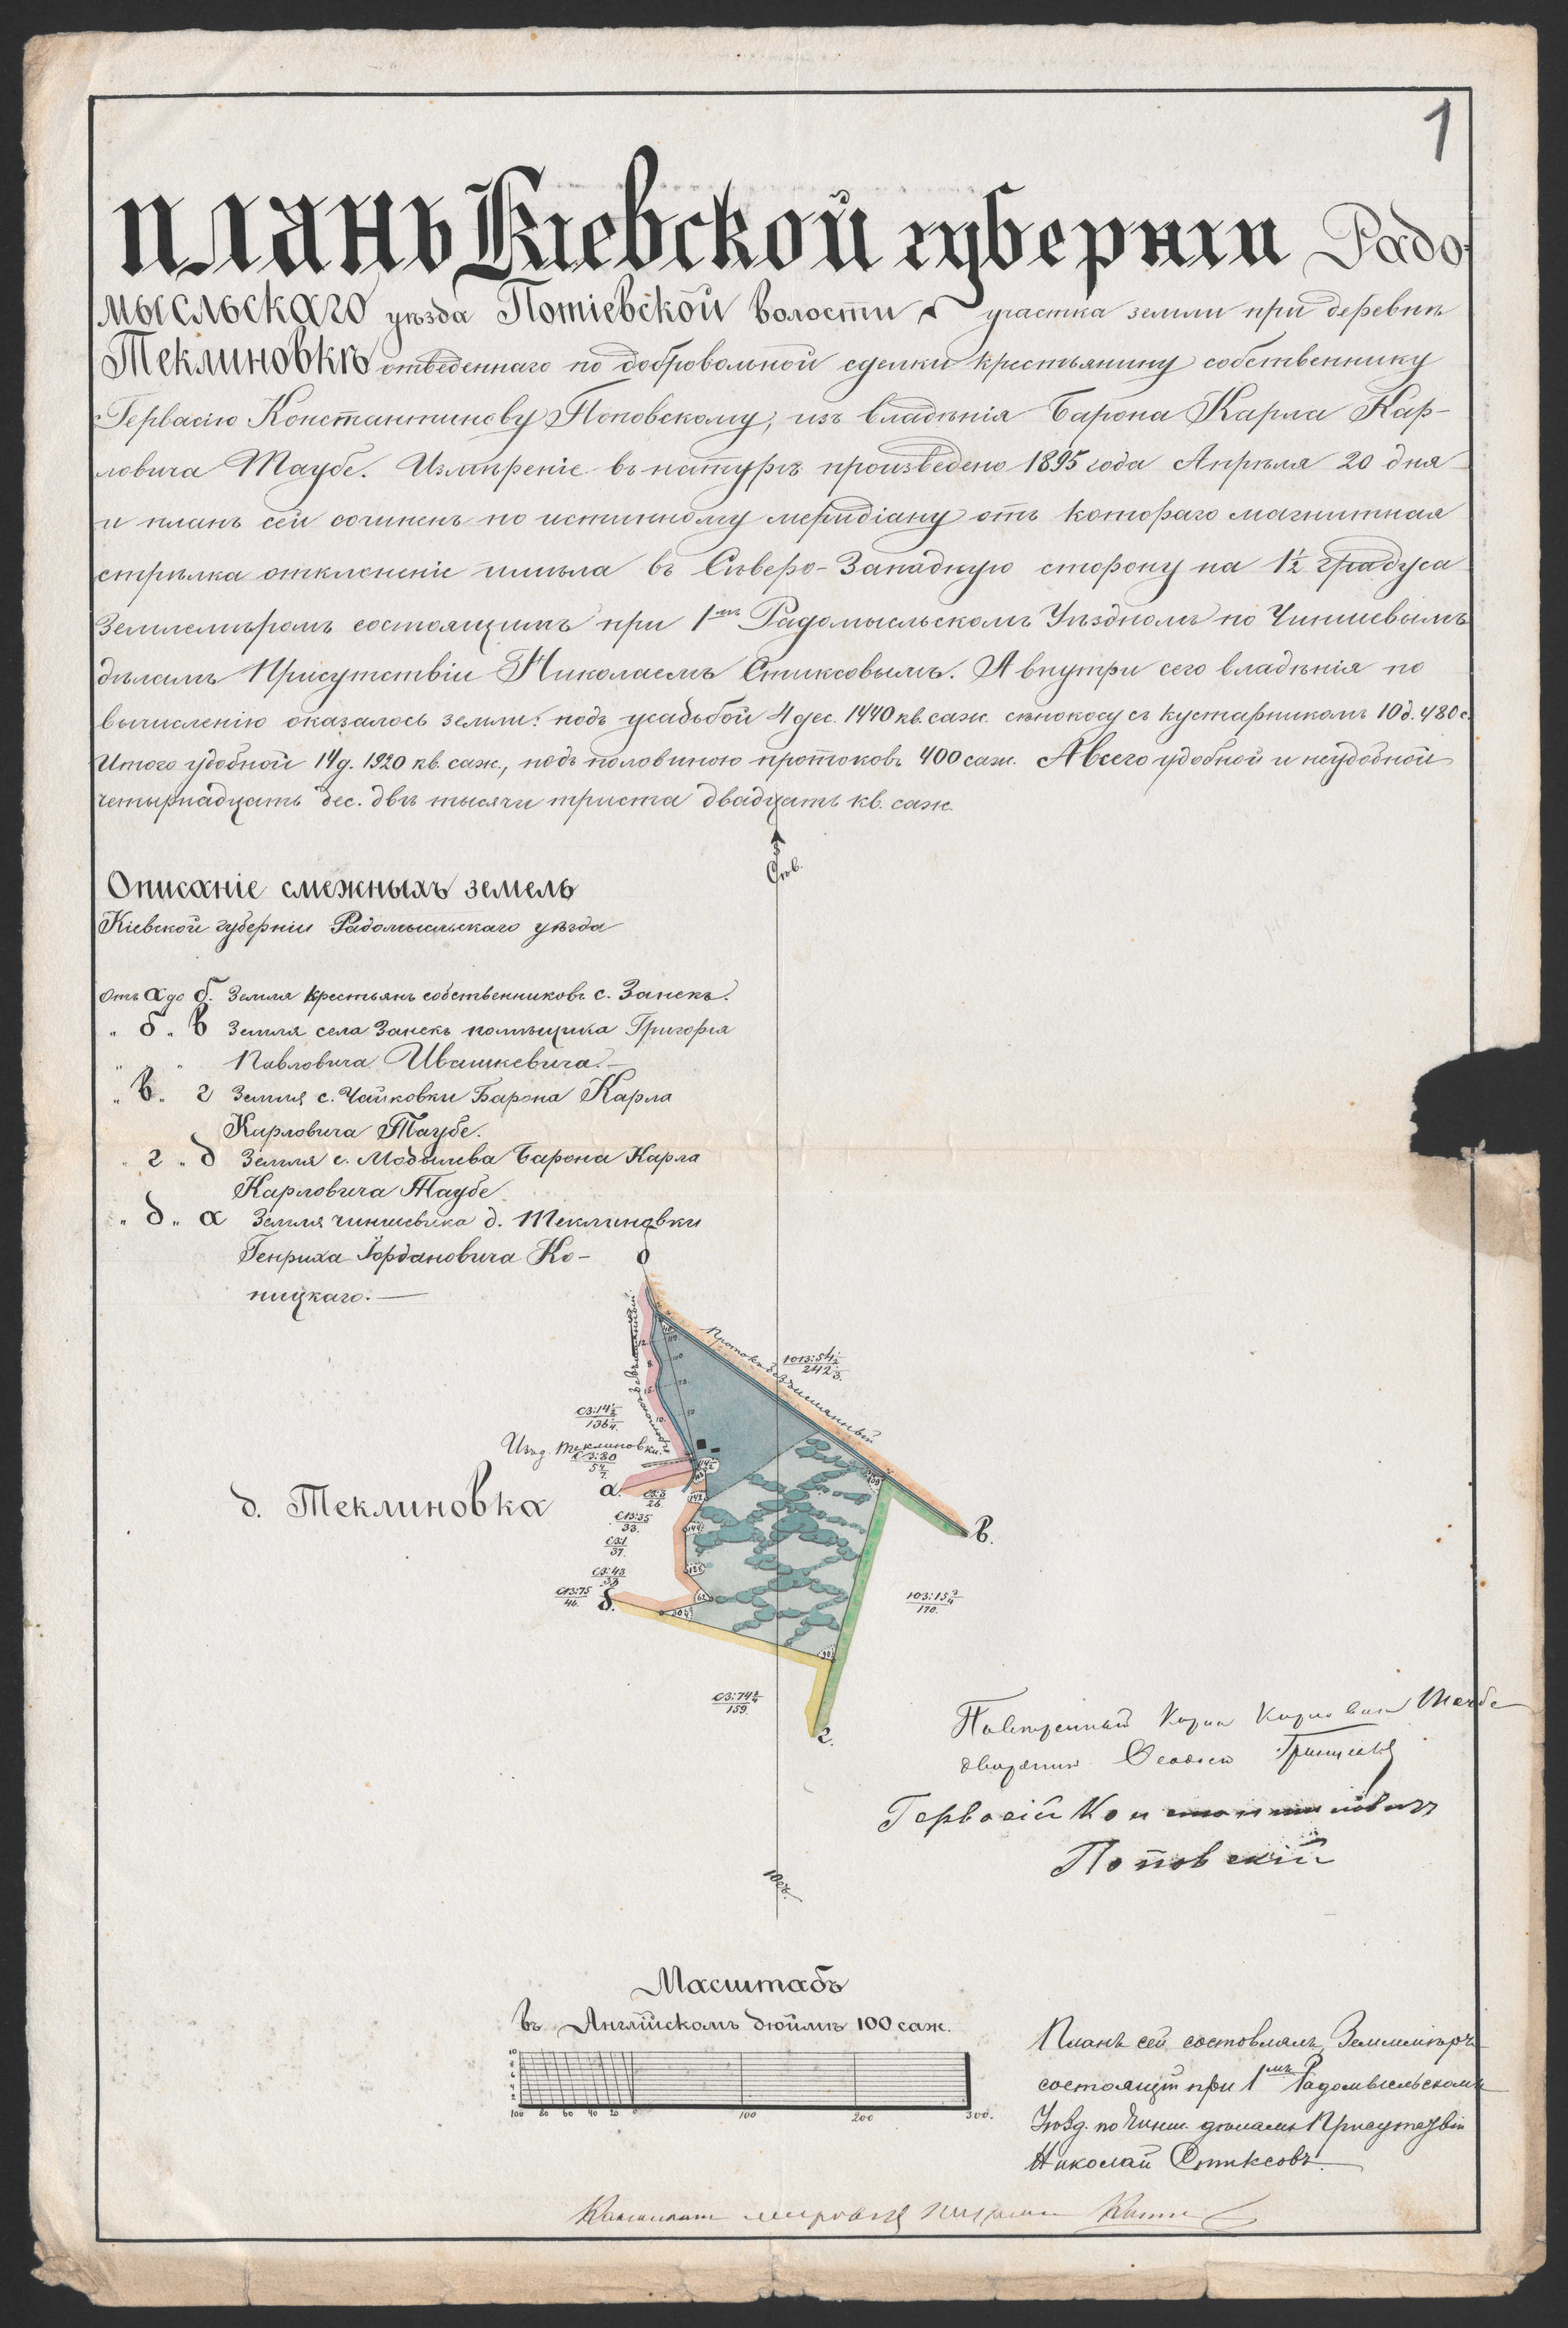 1
планъ Кіевской губерніи Радо-
мысльскаго уѣзда Потіевской волости участка земли при деревнѣ
Теклиновкѣ отведеннаго по добровольной сдѣлки крестьянину собственнику
Гервасію Константинову Поповскому, изъ владѣнія Барона Карла Кар-
ловича Таубе. Измѣреніе въ натурѣ произведено 1895 года Апрѣля 20 дня
и планъ сей сочиненъ по истинному меридіану отъ котораго магнитная
стрѣлка отклоненіе имѣла въ Сѣверо-Западную сторону на 1½ градуса
Землемѣромъ состоящимъ при 1мъ Радомысльскомъ Уѣздномъ по Чиншевымъ
дѣламъ Присутствіи Николаемъ Стиксовымъ. А внутри сего владѣнія по
вычисленію оказалось земли: подъ усадьбой 4 дес. 1440 кв. саж. сѣнокосу съ кустарникомъ 10 д. 480 с.
Итого удобной 14 д. 1920 кв. саж., подъ половиною протоковъ 400 саж. А всего удобной и неудобной
четырнадцать дес. двѣ тысячи триста двадцать кв. саж.
Сѣв.
Описаніе смежныхъ земель
Кіевской губерніи Радомысльскаго уѣзда
Отъ а до б. Земля крестьянъ собственниковъ с. Занекъ.
" б " в Земля села Занекъ помѣщика Григорія
" " Павловича Ивашкевича.—
" в " г Земля с. Чайковки Барона Карла
Карловича Таубе.
" г " д Земля с. Модылева Барона Карла
Карловича Таубе.
" д " а Земля чиншевика д. Теклиновки
Генриха Іордановича Ко-
ницкаго.—
д
Протокъ безъимянный
ЮВ:54½
242⅓.
СЗ:14½
136¼.
Изъ д. Теклиновки.
СЗ:80
54
а.
СЗ:3
26.
д. Теклиновка
СВ:35
33.
СЗ:1
37.
СЗ:43
33
СВ:75
46.
б.
в.
ЮЗ:15¾
170.
СЗ:74¾
159.
г.
Повѣренный Карла Карловича Таубе
дворянинъ
Гервасій Константиновичъ
Поповскій
Югъ.
Масштабъ
въ Англійскомъ дюймѣ 100 саж.
10 8 6 4 2
100 80 60 40 20 0 100 200 300.
Планъ сей состовлялъ Землемѣръ
состоящій при 1мъ Радомысльскомъ
Уѣзд. по Чинш. дѣламъ Присутствіи
Николай Стиксовъ.